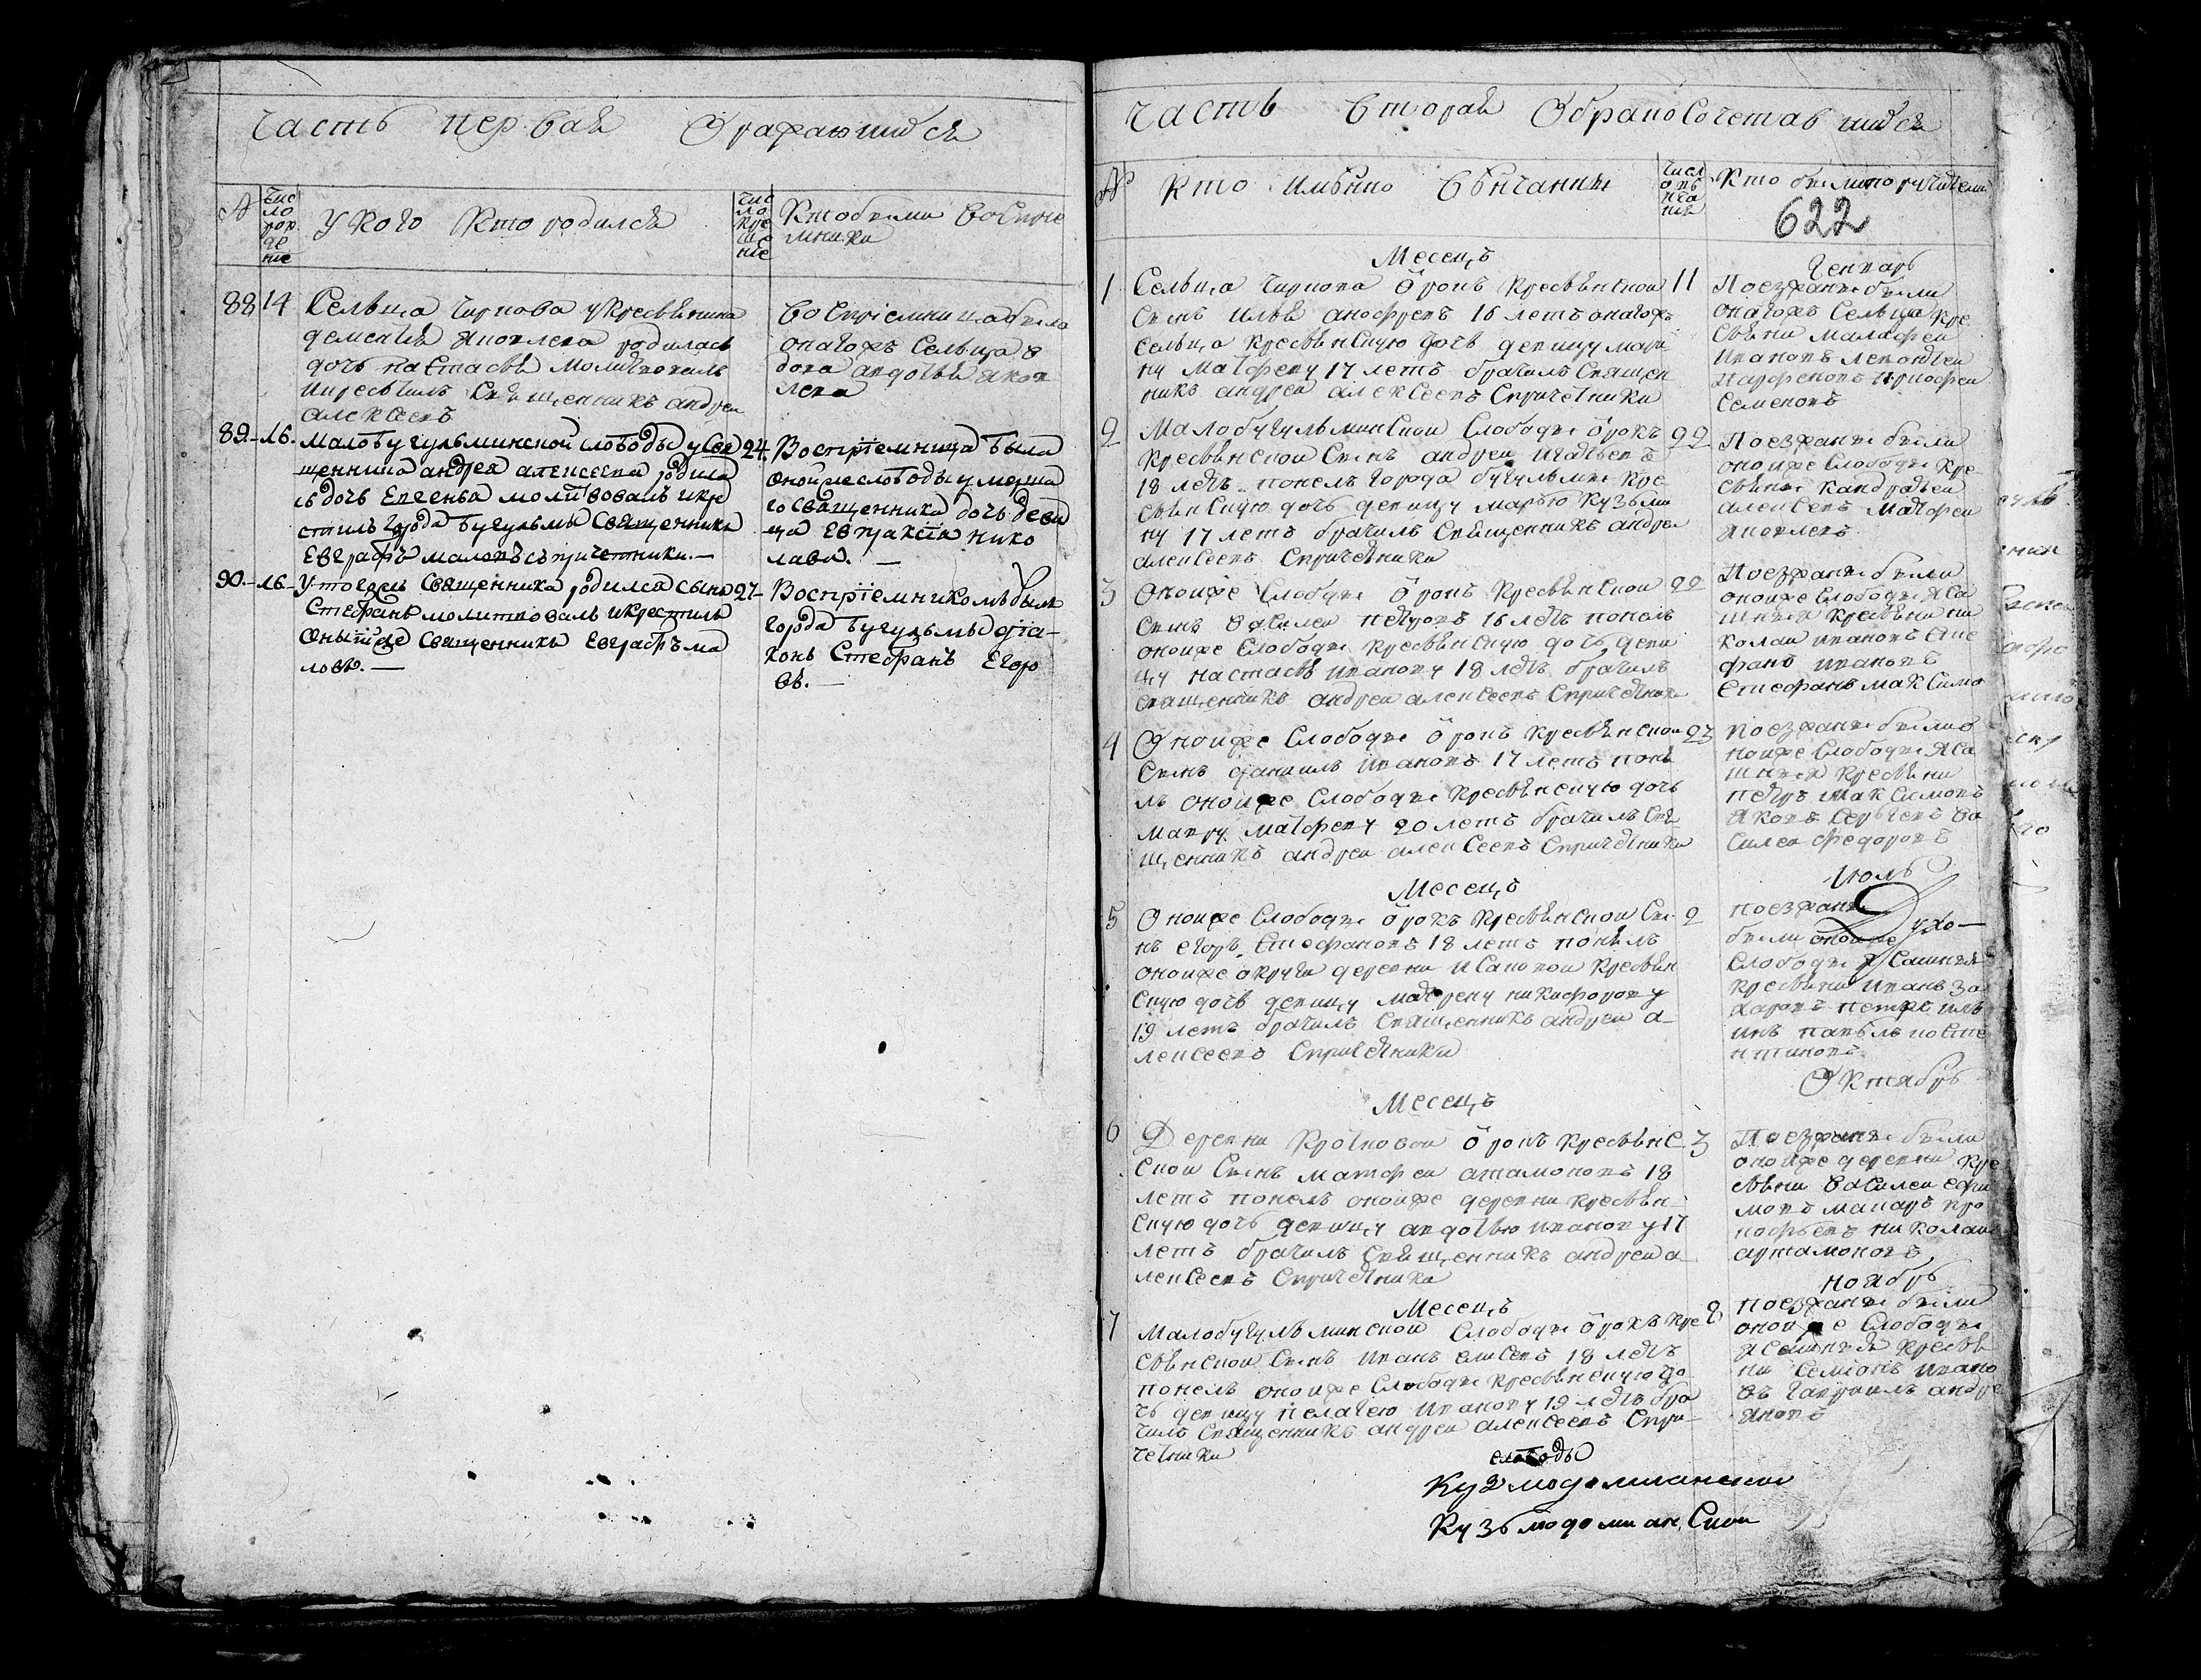 Часть первая Орађающихся
№
чис
ло
рож
де
ние
у кого кто родился
чис
ло
кре
ще
ние
Кто были восприе
мники
88 14 Сельца чиркова укресьянина
дементия яковлева родилась
дочь настасья молитвовалъ
икрестилъ священникъ андреи
алексеевъ
восприемница была
онагожъ сельца ѳ
дора авдотья яков
лева
89.-16. Малобугульминской слободы усвя 24.
щенника андрея алексеева родила
сь дочь евсевья молитвовалъ икре
стилъ города бугульмы священникъ
Евграфъ маловъ съ причетники.—
Восприемница была
оной же слободы умерша
го священника дочь деви
ца Евпраксiа нико
лава. —
90.-16- У того дъ священника родился сынъ 27-
Стефанъ молитвовалъ и крестилъ
оный же священникъ Евграфъ ма
ловъ. —
Восприемникомъ былъ
города бугульмы дiа-
конъ Стефанъ Егоро
въ. —
Часть вторая Обракосочетавшихся
№
Кто имѣнно вѣнчанны
числ
о вѣ
нча
ния
Кто были поручители
622
Месецъ
Генварь
1 Сельца чиркова отрокъ кресьянской 11
сынъ илья анофревъ 16 летъ онагожъ
сельца кресьянскую дочь девицу мари
ну матфеву 17 летъ брачилъ священ
никъ андреи алексеевъ спричетники
Поезжаны были
онагожъ сельца кре
сьяни малафеи
ивановъ леконтеи
парфеновъ
семеновъ
2 Малобугульминской слободы отрокъ 22
кресьянской сынъ андреи игатьевъ
18 летъ понелъ города бугульмы кре
сьянскую дочь девицу марью кузьми
ну 17 летъ брачилъ священникъ андреи
алексеевъ спричетники
Поезжаны были
оноиже слободы кре
сьяны кандратеи
алексеевъ матфеи
яковлевъ
3 Оноиже слободы отрокъ кресьянской 22
сынъ василеи петровъ 16 летъ понелъ
оноиже слободы кресьянскую дочь деви
цу настасью иванову 18 летъ брачилъ
священникъ андреи алексеевъ спричетники
Поезжаны были
оноиже слободы яса
шныя кресьяни ни
колаи ивановъ сте
фанъ ивановъ
стефанъ максимо
4 Оноиже слободы отрокъ кресьянской 23
сынъ данилъ ивановъ 17 летъ поня
лъ оноиже слободы кресьянскую дочь
мавру матфеву 20 летъ брачилъ свя
щенникъ андреи алексеевъ спричетники
поезжаны были о
ноиже слободы яса
шныя кресьяни
петръ максимовъ
яковъ сергеевъ ва
силеи федоровъ
Месецъ
Июль
5 Оноиже слободы отрокъ кресьянской сы- 2
нъ егоръ стефановъ 18 летъ понялъ
оноиже округи деревни исаковои кресьян
скую дочь девицу матрену никифорову
19 летъ брачилъ священникъ андреи а-
лексеевъ спричетники
поезжаны
Духо—
были оноиже
слободы ясашныя
кресьяни иванъ за
харовъ петръ иль
инъ павелъ косте
нтиновъ
Месецъ
Октябрь
6 Деревни кротковои отрокъ кресьянс 3
скои сынъ матфеи атамоновъ 18
летъ понелъ оноиже деревни кресьян-
скую дочь девицу авдотью иванову 17
летъ брачилъ священникъ андреи а-
лексеевъ спричетники
Поезжаны были
оноиже деревни кре
сьяни василеи ефи
мовъ макаръ про
кофьевъ николаи
артамоновъ
Месецъ
ноябрь
7 Малобугульминскои слободы отрокъ кре 8
сьянскои сынъ иванъ елисевъ 18 летъ
понелъ оноиже слободы кресьянскую до
чь девицу пелагею иванову 19 летъ бра
чилъ священникъ андреи алексеевъ спри-
четники
поезжаны были
оноиже слободы
ясашныя кресья
ни семионъ ивано
въ гаврилъ андре
яновъ
слободы
Кузмодемианской
Кузьмодемианскои